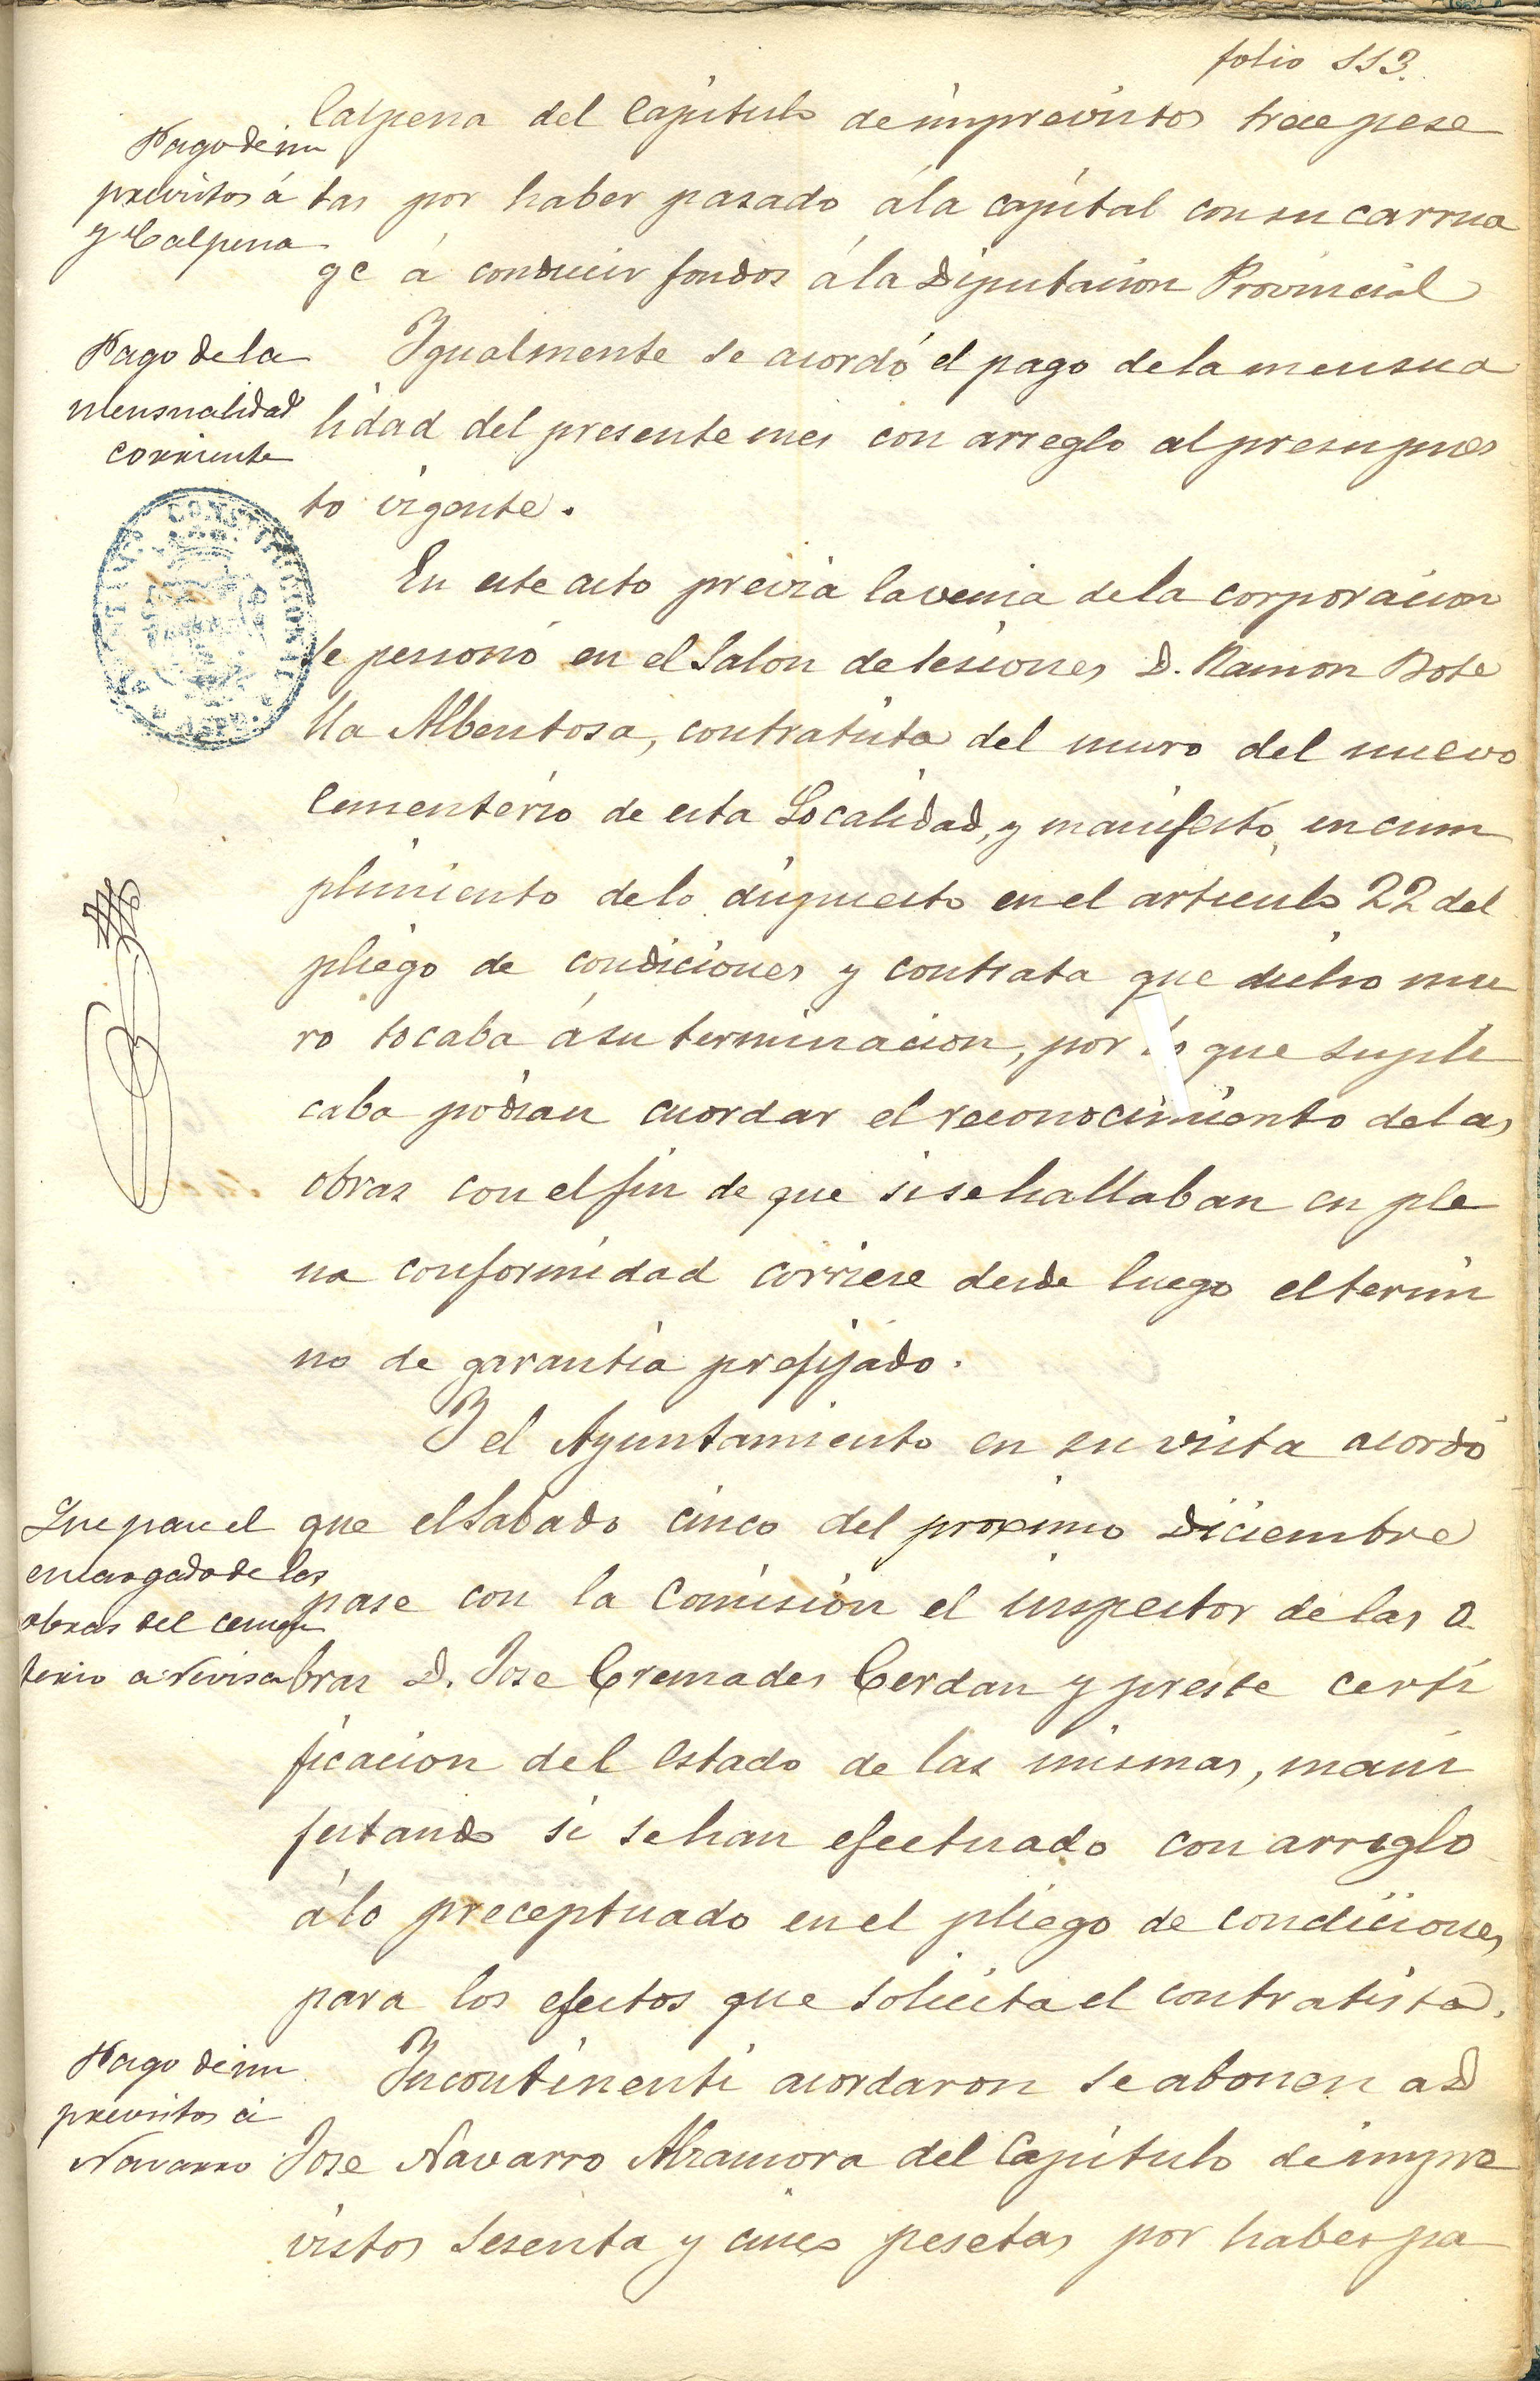 folio 113.
Calpena del Capitulo de imprevistos trece pese
Pago de im
previstos á
y Calpena
tas por haber pasado á la capital con su carrua
ge á conducir fondos á la Diputacion Provincial
Pago de la
mensualidad
corriente
Igualmente se acordó el pago de la mensua
lidad del presente mes con arreglo al presupues
to vigente.
CONSTITUCIONAL
ASPE
En este acto previa la venia de la corporacion
se personó en el Salon de sesiones D. Ramon Bote
lla Albentosa, contratista del muro del nuevo
Cementerio de esta Localidad, y manifestó, en cum
plimiento de lo dispuesto en el articulo 22 del
pliego de condiciones y contrata que dicho mu
ro tocaba á su terminacion, por lo que supli
caba podian acordar el reconocimiento de las
obras con el fin de que si se hallaban en ple
na conformidad corriese desde luego el termi
no de garantia prefijado.
Y el Ayuntamiento en su vista acordó
Que pase el
encargado de las
obras del cemen
terio a revisar
que el Sabado cinco del proximo Diciembre
pase con la Comision el inspector de las o
bras D. Jose Cremades Cerdan y preste certi
ficacion del estado de las mismas, mani
festando si se han efectuado con arreglo
á lo preceptuado en el pliego de condiciones
para los efectos que solicita el contratista.
Pago de im
previstos á
Navarro
Incontinenti acordaron se abonen a D
Jose Navarro Alzamora del Capitulo de impre
vistos sesenta y cinco pesetas por haber pa